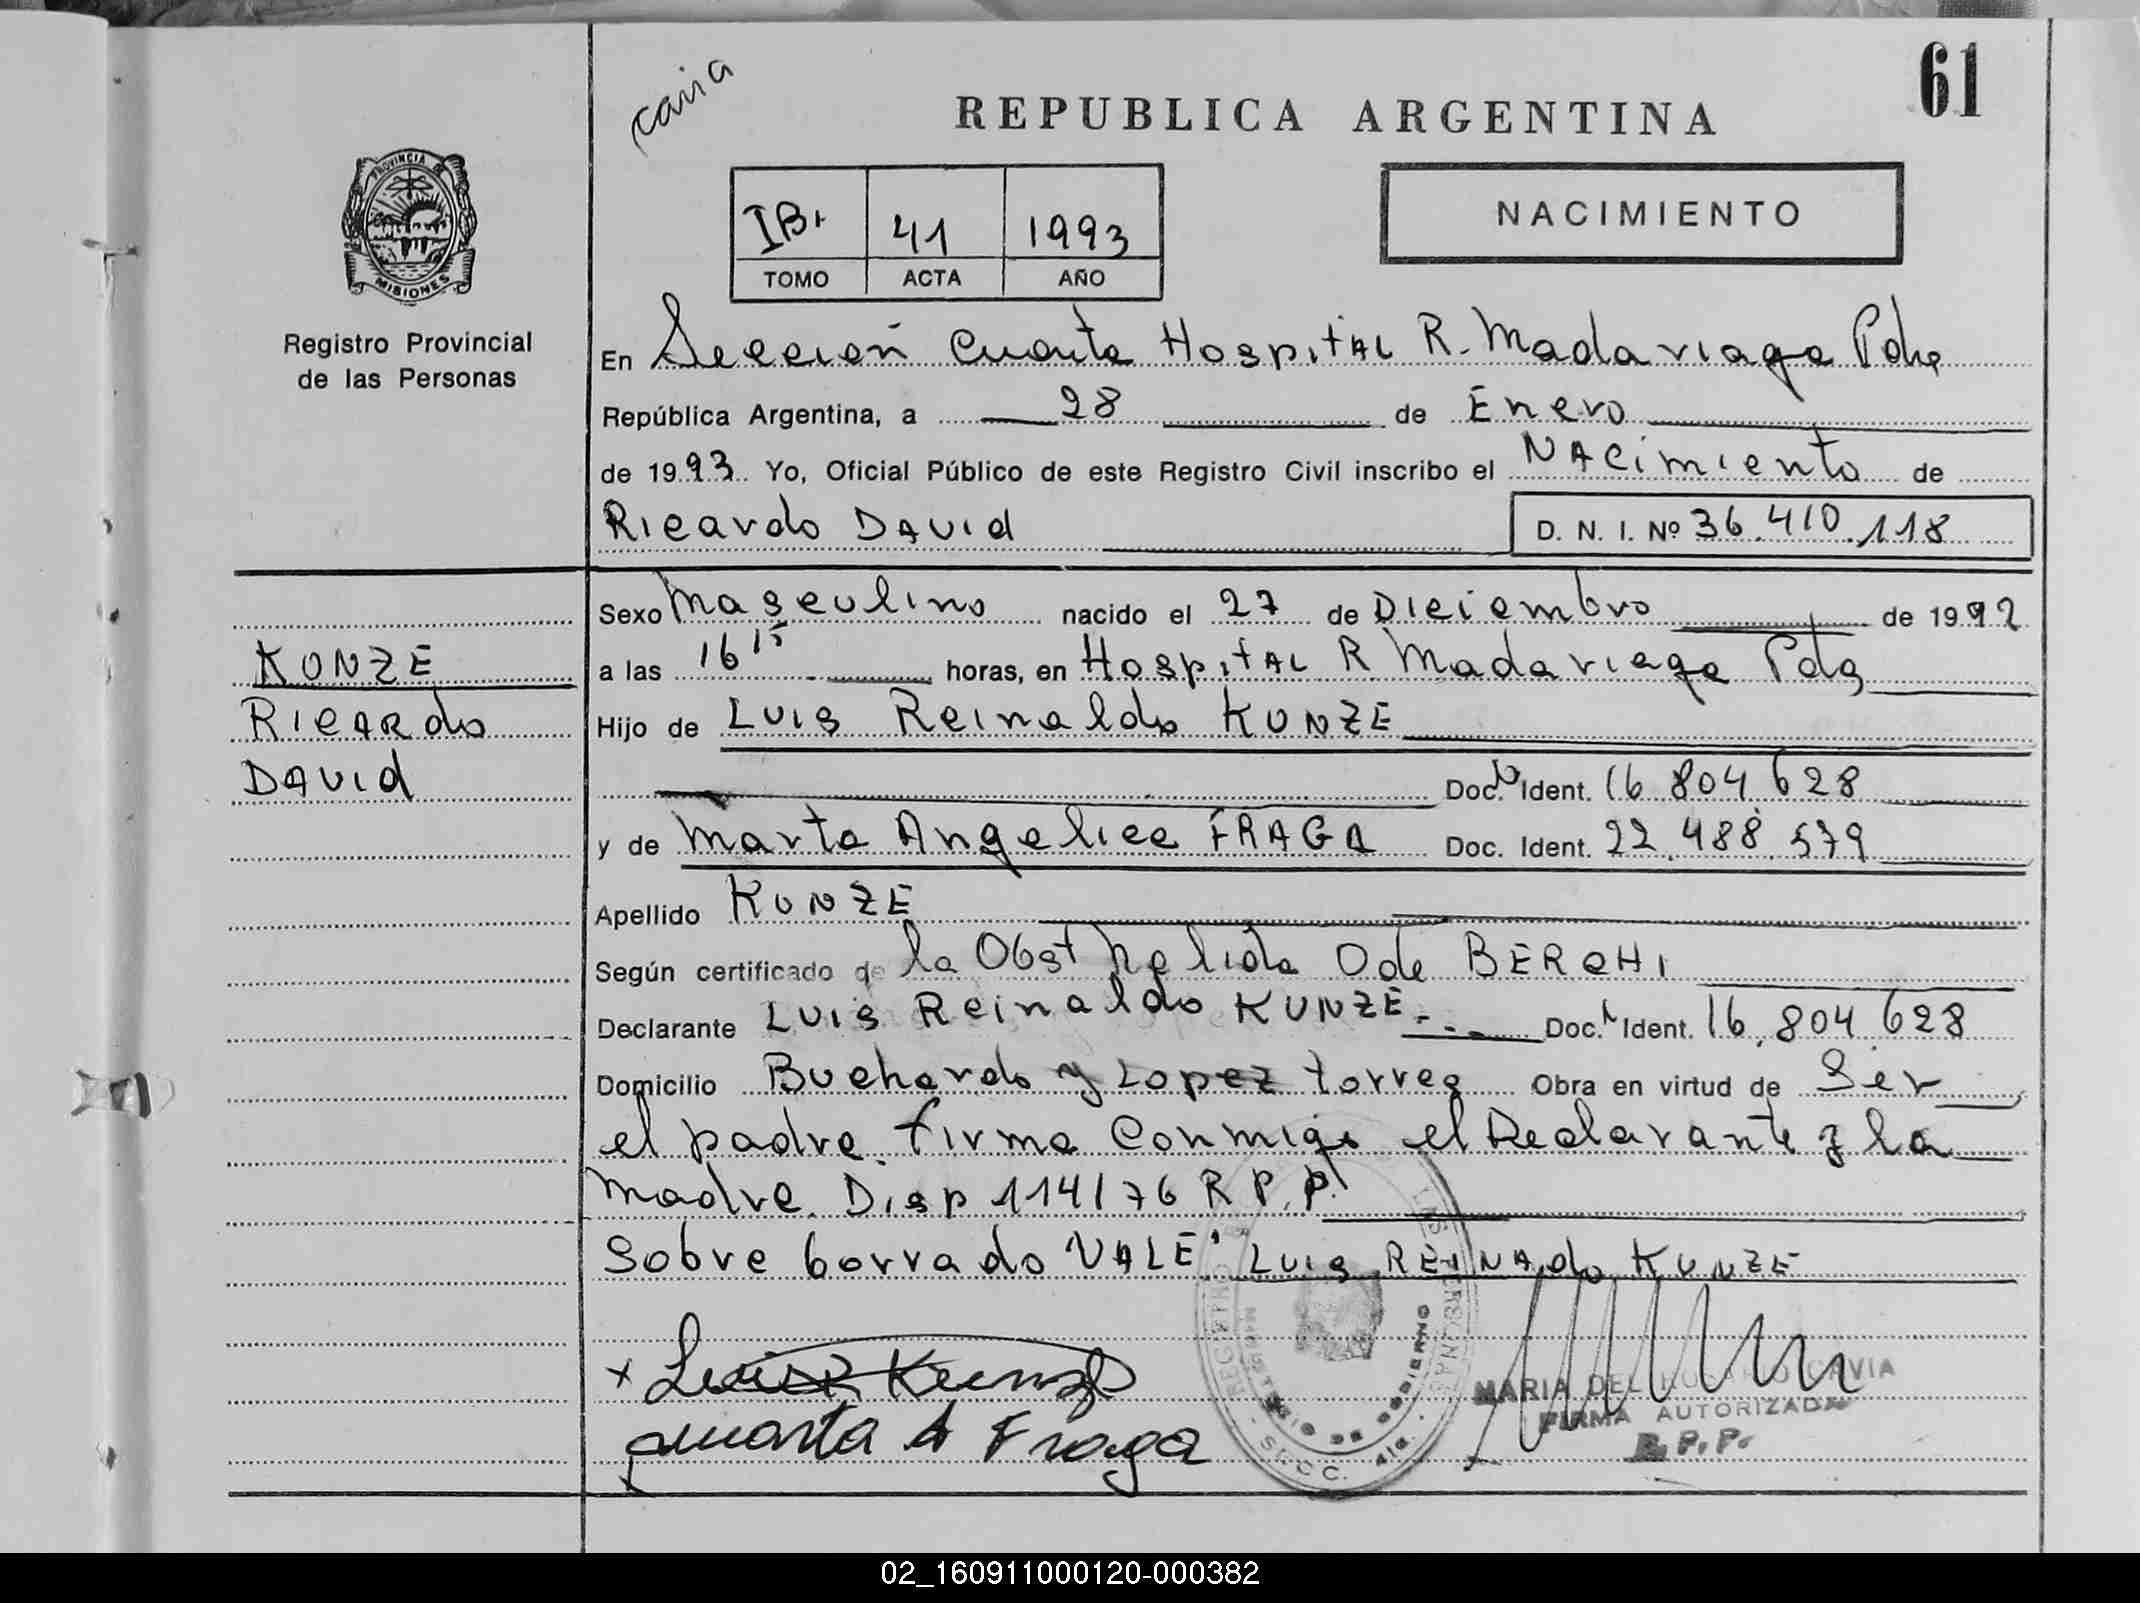 61
REPUBLICA ARGENTINA
NACIMIENTO
PROVINCIA
MISIONES
Registro Provincial
de las Personas
IBI 41 1993
TOMO ACTA AÑO
En Sección Cuarta Hospital R. Madariaga Pdas
República Argentina, a 28 de Enero
de 1993 Yo, Oficial Público de este Registro Civil inscribo el NAcimiento de
Ricardo DAVId D. N. I. Nº 36.410.118
Sexo Masculino nacido el 27 de Diciembre de 1992
KUNZE
Ricardo
DAVId
a las 16 15 horas, en Hospital R Madariaga Pdas
Hijo de Luis Reinaldo KUNZE
Doc. N Ident. 16 804.628
y de Marta Angelica FRAGA Doc. Ident. 22.488.579
Apellido KUNZE
Según certificado de la Obst Nelida O de BERCHI
Declarante Luis Reinaldo KUNZE Doc. N Ident. 16.804.628
Domicilio Buchardo y Lopez torres Obra en virtud de Ser
el padre. firma Conmigo el Declarante y la
Madre. Disp 114/76 R P.P.
Sobre borrado "VALE" Luis REINAldo KUNZE
x Luis R Kunze
Marta A Fraga
MARIA DEL CAVIA
FIRMA AUTORIZADA
R.P.P.
02_160911000120-000382